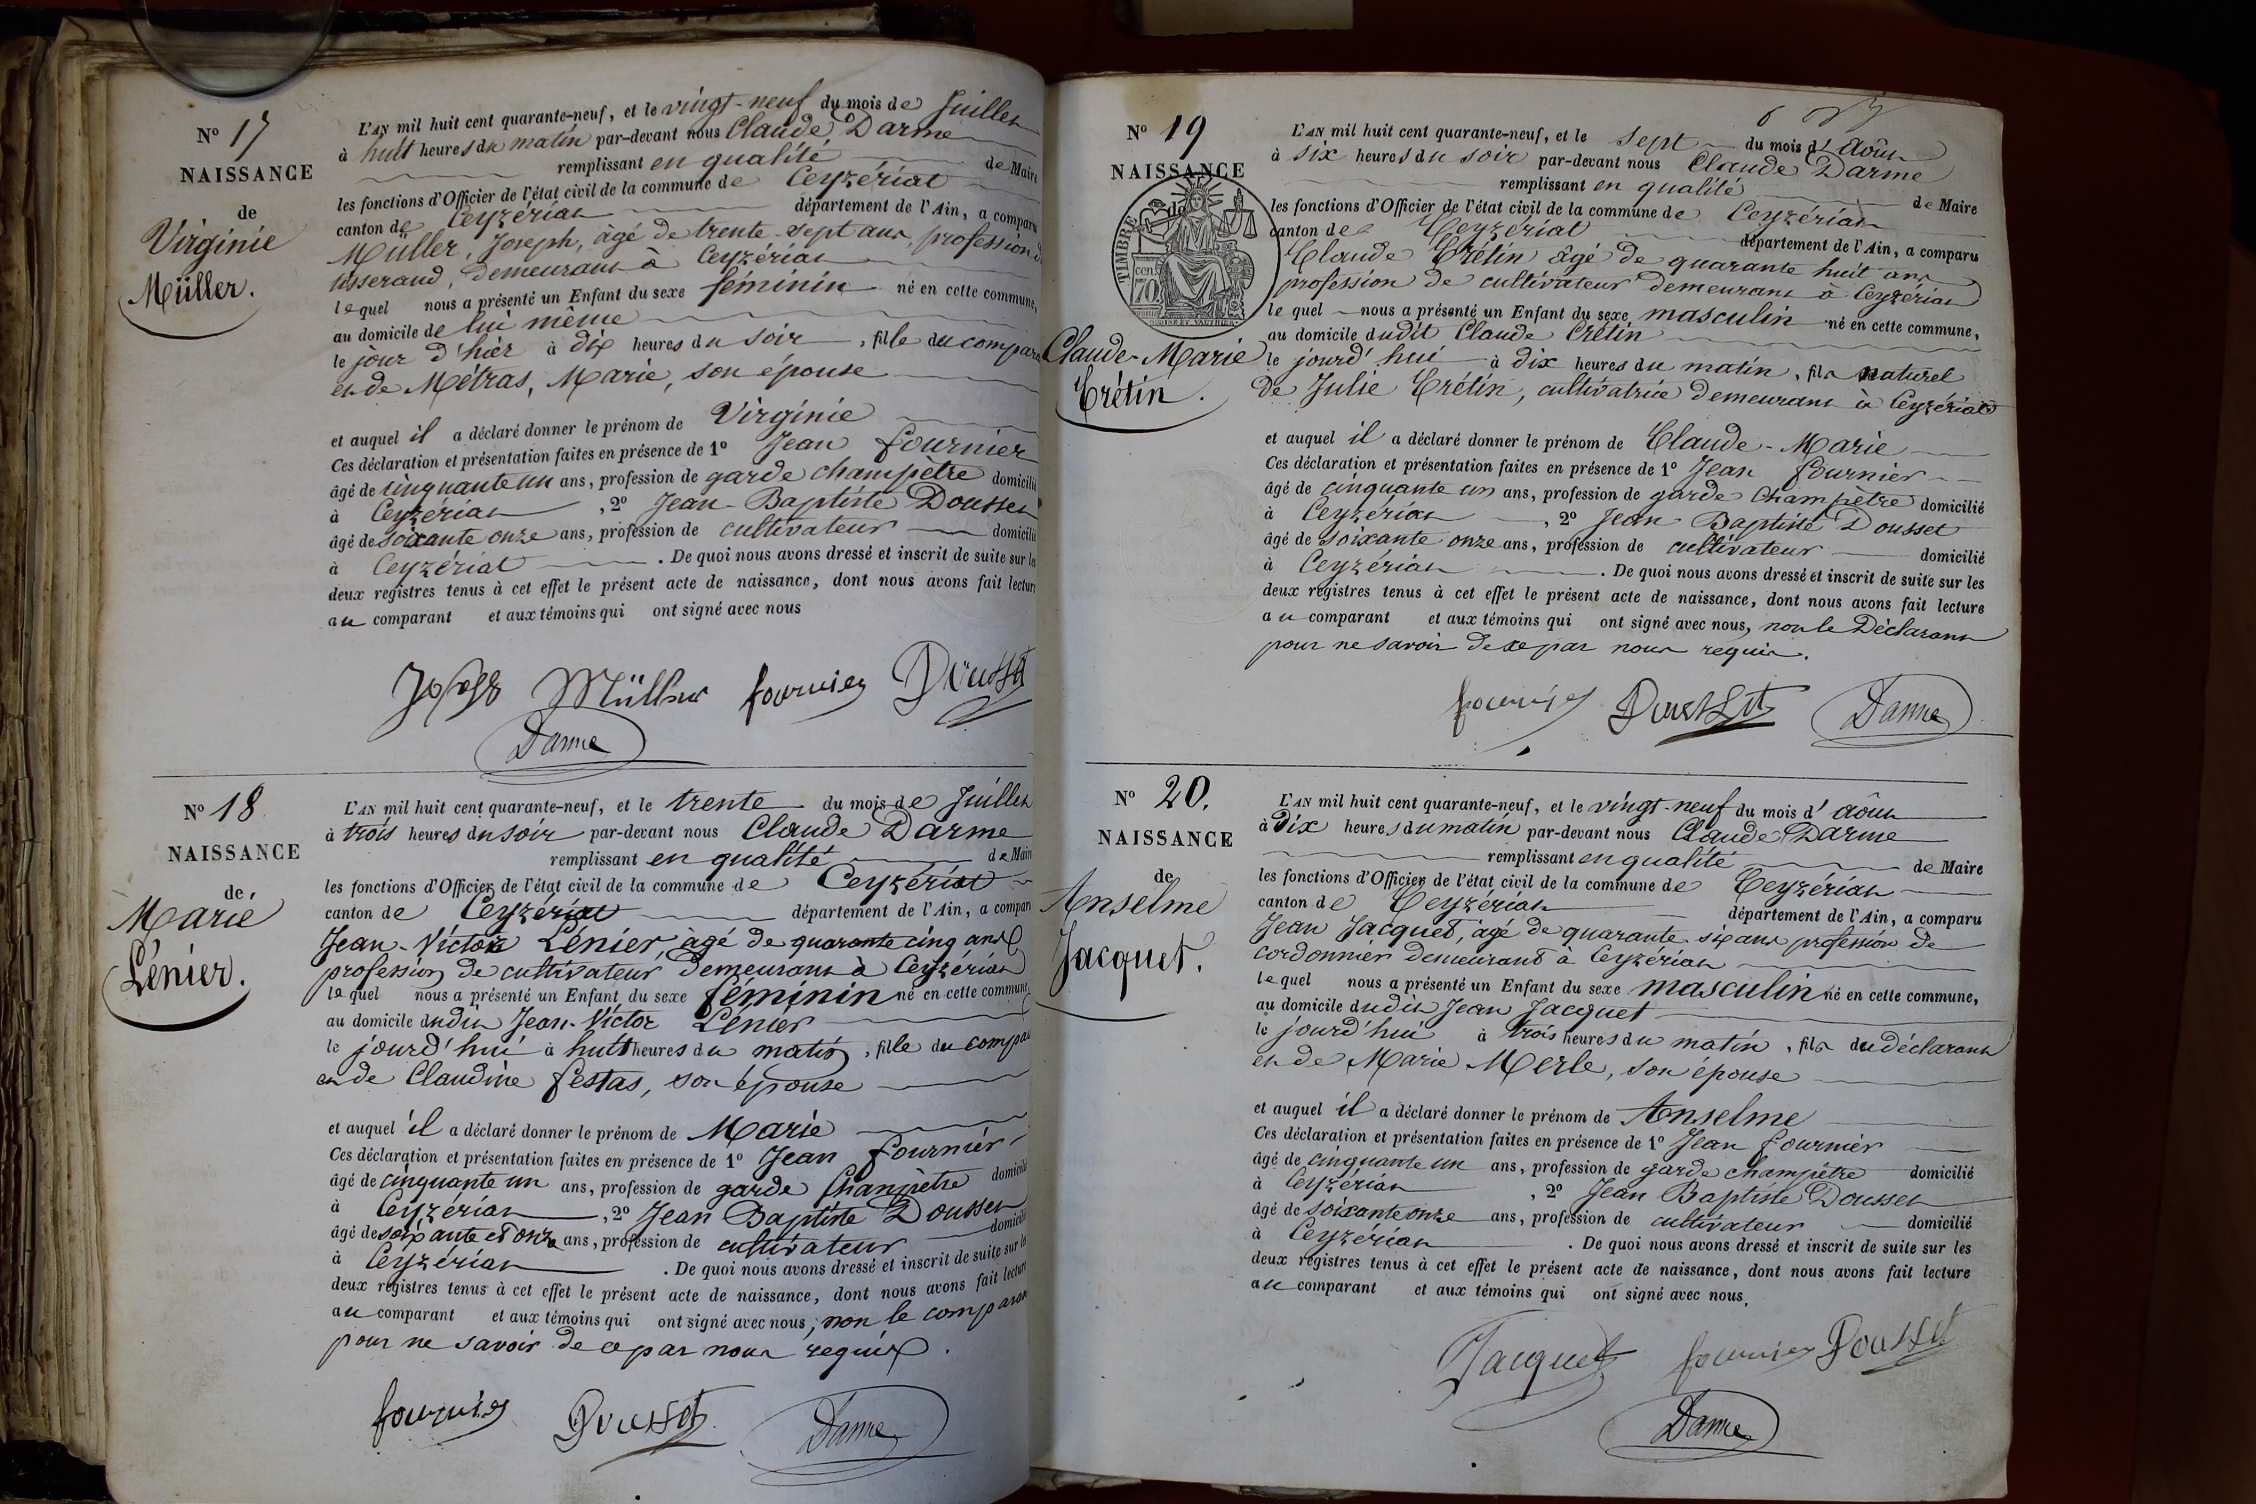 N° 17
NAISSANCE
de
Virginie
Müller.
L'AN mil huit cent quarante-neuf, et le vingt-neuf du mois de Juillet
à huit heures du matin par-devant nous Claude Darme
remplissant en qualité de Maire
les fonctions d'Officier de l'état civil de la commune de Ceyzériat
canton de Ceyzériat département de l'Ain, a comparu
Müller, Joseph, âgé de trente-sept ans, profession de
tisserand, demeurant à Ceyzériat
lequel nous a présenté un Enfant du sexe féminin né en cette commune,
au domicile de lui même
le jour d'hier à dix heures du soir, fille du compar
et de Métras, Marie, son épouse
et auquel il a déclaré donner le prénom de Virginie
Ces déclaration et présentation faites en présence de 1° Jean fournier
âgé de cinquante un ans, profession de garde champêtre domicilié
à Ceyzériat, 2° Jean-Baptiste Dousset
âgé de soixante onze ans, profession de cultivateur domicilié
à Ceyzériat. De quoi nous avons dressé et inscrit de suite sur les
deux registres tenus à cet effet le présent acte de naissance, dont nous avons fait lecture
au comparant et aux témoins qui ont signé avec nous
Joseph Müller fournier Dousset
Darme
N° 18
NAISSANCE
de
Marie
Lénier.
L'AN mil huit cent quarante-neuf, et le trente du mois de Juillet
à trois heures du soir par-devant nous Claude Darme
remplissant en qualité de Maire
les fonctions d'Officier de l'état civil de la commune de Ceyzériat
canton de Ceyzériat département de l'Ain, a comparu
Jean-Victor Lénier, âgé de quarante cinq ans
profession de cultivateur, demeurant à Ceyzériat
lequel nous a présenté un Enfant du sexe féminin né en cette commune,
au domicile dudit Jean-Victor Lénier
le jourd'hui à huit heures du matin, fille du compar
et de Claudine festas, son épouse
et auquel il a déclaré donner le prénom de Marie
Ces déclaration et présentation faites en présence de 1° Jean fournier
âgé de cinquante un ans, profession de garde champêtre domicilié
à Ceyzériat, 2° Jean Baptiste Dousset
âgé de soixante et onze ans, profession de cultivateur domicilié
à Ceyzériat. De quoi nous avons dressé et inscrit de suite sur les
deux registres tenus à cet effet le présent acte de naissance, dont nous avons fait lecture
au comparant et aux témoins qui ont signé avec nous, non le comparant
pour ne savoir de ce par nous requis.
fournier Dousset Darme
N° 19
NAISSANCE
de
TIMBRE
cen.
70
Claude-Marie
Crétin.
L'AN mil huit cent quarante-neuf, et le sept du mois d'août
à six heures du soir par-devant nous Claude Darme
remplissant en qualité de Maire
les fonctions d'Officier de l'état civil de la commune de Ceyzériat
canton de Ceyzériat département de l'Ain, a comparu
Claude Crétin âgé de quarante huit ans
profession de cultivateur demeurant à Ceyzériat
lequel nous a présenté un Enfant du sexe masculin né en cette commune,
au domicile dudit Claude Crétin
le jourd'hui à dix heures du matin, fils naturel
de Julie Crétin, cultivatrice demeurant à Ceyzériat
et auquel il a déclaré donner le prénom de Claude-Marie
Ces déclaration et présentation faites en présence de 1° Jean fournier
âgé de cinquante un ans, profession de garde champêtre domicilié
à Ceyzériat, 2° Jean Baptiste Dousset
âgé de soixante onze ans, profession de cultivateur domicilié
à Ceyzériat. De quoi nous avons dressé et inscrit de suite sur les
deux registres tenus à cet effet le présent acte de naissance, dont nous avons fait lecture
au comparant et aux témoins qui ont signé avec nous, non le Déclarant
pour ne savoir de ce par nous requis.
fournier Dousset Darme
N° 20.
NAISSANCE
de
Anselme
Jacquet.
L'AN mil huit cent quarante-neuf, et le vingt-neuf du mois d'août
à Dix heures du matin par-devant nous Claude Darme
remplissant en qualité de Maire
les fonctions d'Officier de l'état civil de la commune de Ceyzériat
canton de Ceyzériat département de l'Ain, a comparu
Jean Jacquet, âgé de quarante six ans profession de
cordonnier demeurant à Ceyzériat
lequel nous a présenté un Enfant du sexe masculin né en cette commune,
au domicile dudit Jean Jacquet
le jourd'hui à trois heures du matin, fils du déclarant
et de Marie Merle, son épouse
et auquel il a déclaré donner le prénom de Anselme
Ces déclaration et présentation faites en présence de 1° Jean fournier
âgé de cinquante un ans, profession de garde champêtre domicilié
à Ceyzériat, 2° Jean Baptiste Dousset
âgé de soixante onze ans, profession de cultivateur domicilié
à Ceyzériat. De quoi nous avons dressé et inscrit de suite sur les
deux registres tenus à cet effet le présent acte de naissance, dont nous avons fait lecture
au comparant et aux témoins qui ont signé avec nous.
Jacquet fournier Dousset
Darme